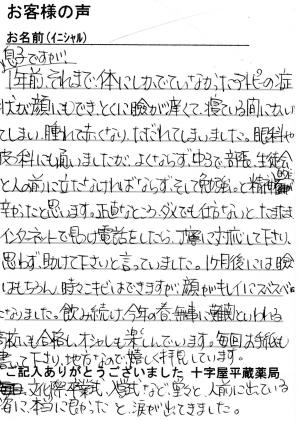 お客様の声
お名前(イニシャル)
息子ですが!
1年前、それまで体にしかでていなかったアトピーの症
状が顔にもでき、とくに瞼が痒くて、寝ている間にかい
てしまい、腫れて赤くなり、ただれてしまいました。眼科や
皮フ科にも通いましたが、よくならず、中3で部長、生徒会
と人の前に立たなければならず、そして勉強。と精神的にも
辛かったと思います。正直なところ、ダメでも仕方ないと、たまたま
インターネットで見つけ電話をしたら、丁寧に対応して下さり、
思わず、助けて下さいと言っていました。1ヶ月後には瞼
はもちろん、時々ニキビはできますが、顔がキレイにスベスベに
なりました。飲み続け、今年の春、無事に難関といわれる
高校にも合格し、オシャレも楽しんでいます。毎回お手紙も
書いて下さり、地方なので嬉しく拝見しています。
ご記入ありがとうございました 十字屋平蔵薬局
毎日、文化祭、卒業式、入学式など堂々と、人前に出ている
姿に、本当に良かったと、涙が出てきました。